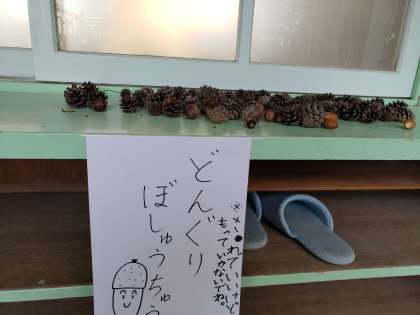 どんぐり
ぼしゅうちゅう
わっていいけど
もっていかないでね。